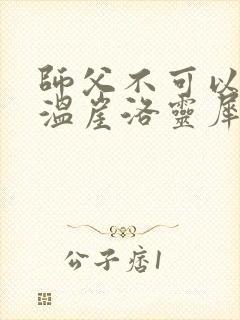 師父不可以
溫崖洛靈犀
公子痞1